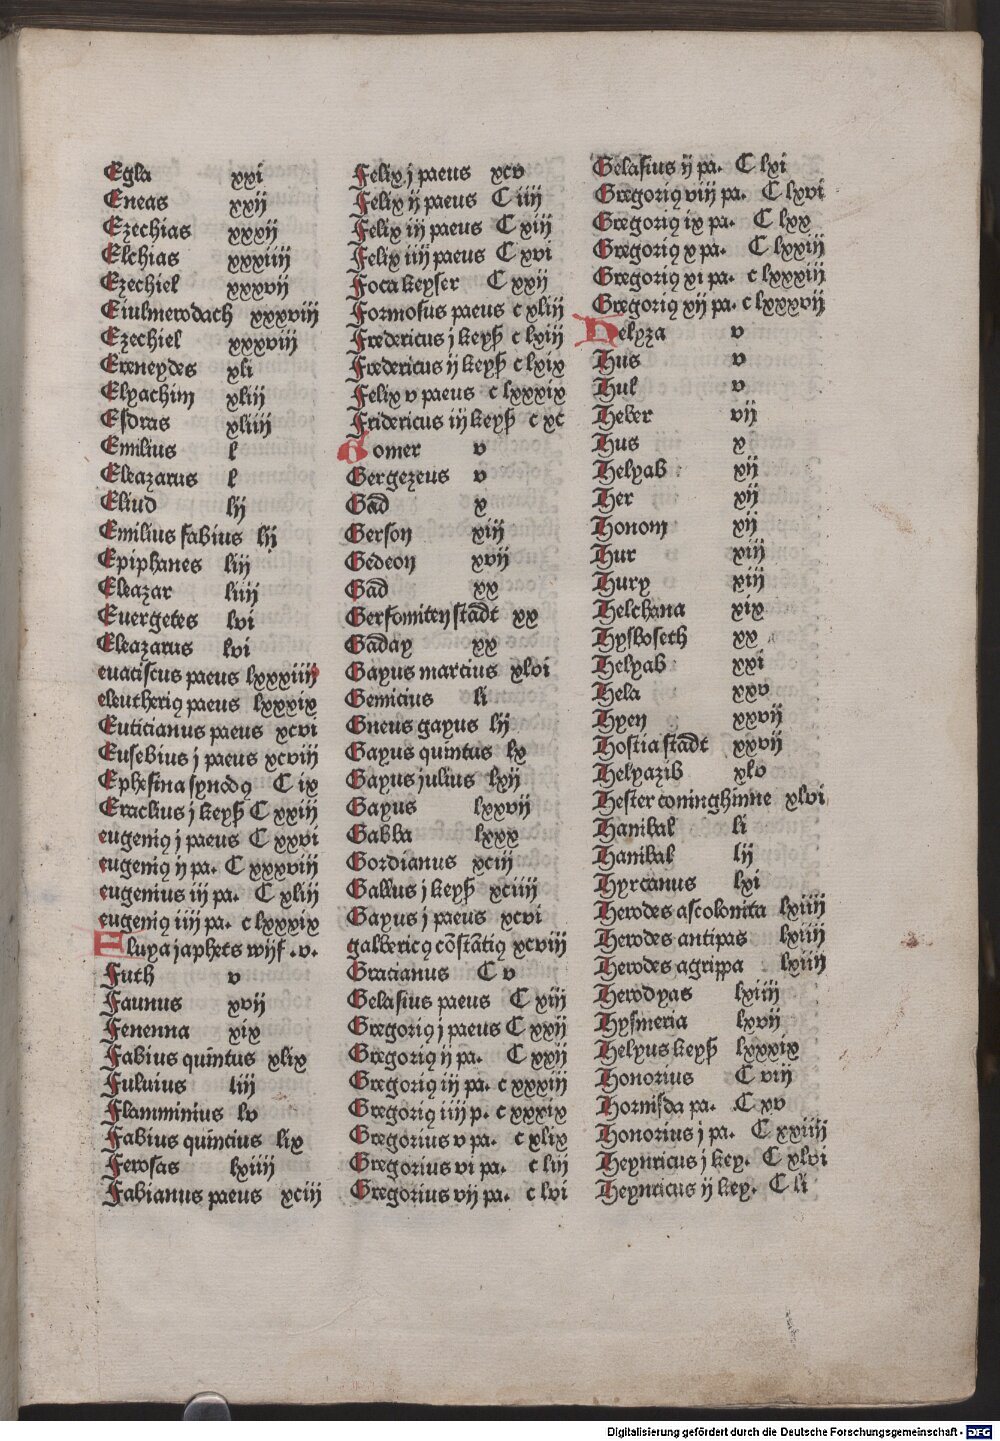 Egla xxi
Eneas xxij
Ezechias xxxij
Elchias xxxiiij
Ezechiel xxxvij
Eiulmerodach xxxviij
Ezechiel xxxviij
Ereneydes xli
Elyachim xliij
Esdras xliiij
Emilius l
Eleazarus l
Eliud lij
Emilius fabius lij
Epiphanes liij
Eleazar liiij
Euergetes lvi
Eleazarus lvi
euaciscus paeus lxxxiiij
eleutheriꝯ paeus lxxxix
Euticianus paeus xcvi
Eusebius j paeus xcviij
Ephesina synodꝯ C ix
Eraclius j keyſz C xxiij
eugeniꝯ j paeus C xxvi
eugeniꝯ ij pa. C xxxviij
eugenius iij pa. C xliij
eugeniꝯ iiij pa. c lxxxix
Fluya japhets wijf .v.
Futh v
Faunus xvij
Fenenna xix
Fabius quintus xlix
Fuluius liij
Flamminius lv
Fabius quincius lix
Ferosas lxiiij
Fabianus paeus xciij
Felix j paeus xcv
Felix ij paeus C iiij
Felix iij paeus C xiij
Felix iiij paeus C xvi
Foca keyser C xxij
Formosus paeus c xliij
Fredericus j keyſz c lxiij
Fredericus ij keyſz c lxix
Felix v paeus c lxxxix
Fridericus iij keyſz c xc
Gomer v
Gergezeus v
Gad x
Gerson xiij
Gedeon xvij
Gad xx
Gersomiten stadt xx
Gaday xx
Gayus marcius xlvi
Genicius li
Gneus gayus lij
Gayus quintus lx
Gayus julius lxij
Gayus lxxvij
Gabba lxxx
Gordianus xciij
Gallus j keyſz xciiij
Gayus j paeus xcvi
galbericꝯ cōstātiꝯ xcviij
Gracianus C v
Gelasius paeus C xiij
Gregoriꝯ j paeus C xxij
Gregoriꝯ ij pa. C xxvij
Gregoriꝯ iij pa. c xxxiij
Gregoriꝯ iiij p. c xxxix
Gregorius v pa. c xlix
Gregorius vi pa. c liij
Gregorius vij pa. c lvi
Gelasius ij pa. C lxi
Gregoriꝯ viij pa. C lxvi
Gregoriꝯ ix pa. C lxx
Gregoriꝯ x pa. C lxxiij
Gregoriꝯ xi pa. c lxxxiij
Gregoriꝯ xij pa. c lxxxvij
Helyza v
Hus v
Hul v
Heber vij
Hus x
Helyab xij
Her xij
Honom xij
Hur xiij
Hury xiij
Helchana xix
Hysboseth xx
Helyab xxi
Hela xxv
Hyen xxvij
Hostia stadt xxvij
Helyazib xlv
Hester coninghinne xlvi
Hanibal li
Hanibal lij
Hyrcanus lxi
Herodes ascolonita lxiiij
Herodes antipas lxiiij
Herodes agrippa lxiiij
Herodyas lxiiij
Hysmeria lxvij
Helyus keyſz lxxxix
Honorius C viij
Hornisda pa. C xv
Honorius j pa. C xxiiij
Heynricus j key. C xlvi
Heynricus ij key. C li
Digitalisierung gefördert durch die Deutsche Forschungsgemeinschaft - DFG